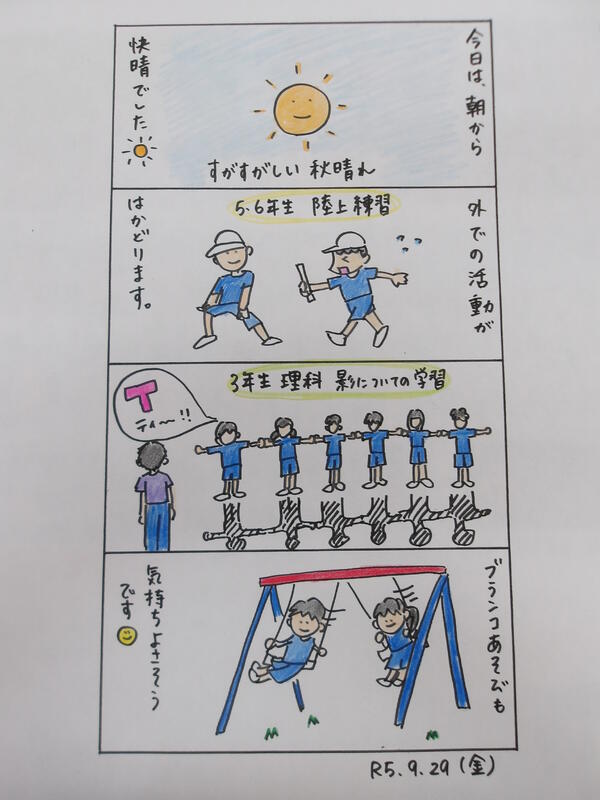 今日は、朝から
快晴でした
すがすがしい 秋晴れ
外での活動が
はかどります。
5・6年生 陸上練習
3年生 理科 影についての学習
T
ティ〜!!
ブランコあそびも
気持ちよさそう
です
R5.9.29(金)